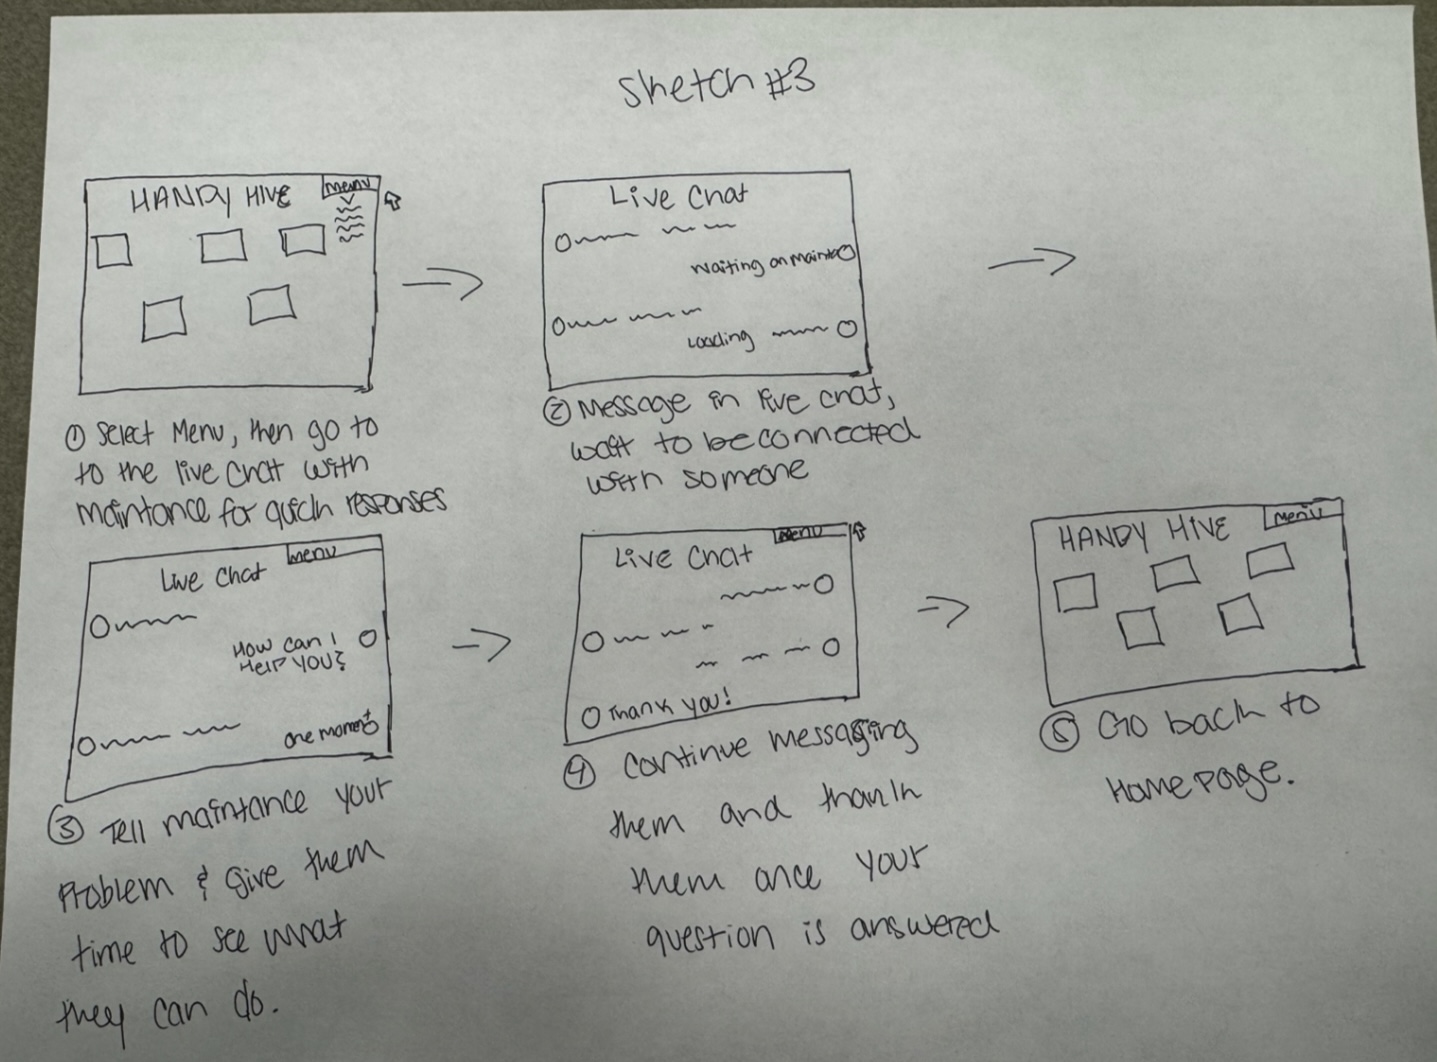 Sketch #3
HANDY HIVE
Menu
① Select Menu, then go to
to the live chat with
maintance for quick responses
Live Chat
Waiting on maint
Loading
② Message in live chat,
wait to be connected
with someone
Live Chat
menu
How can I
Help you?
one moment
③ Tell maintance your
Problem & give them
time to see what
they can do.
Live Chat
Menu
Thank you!
④ Continue messaging
them and thank
them once your
question is answered
HANDY HIVE
Menu
⑤ Go back to
Homepage.